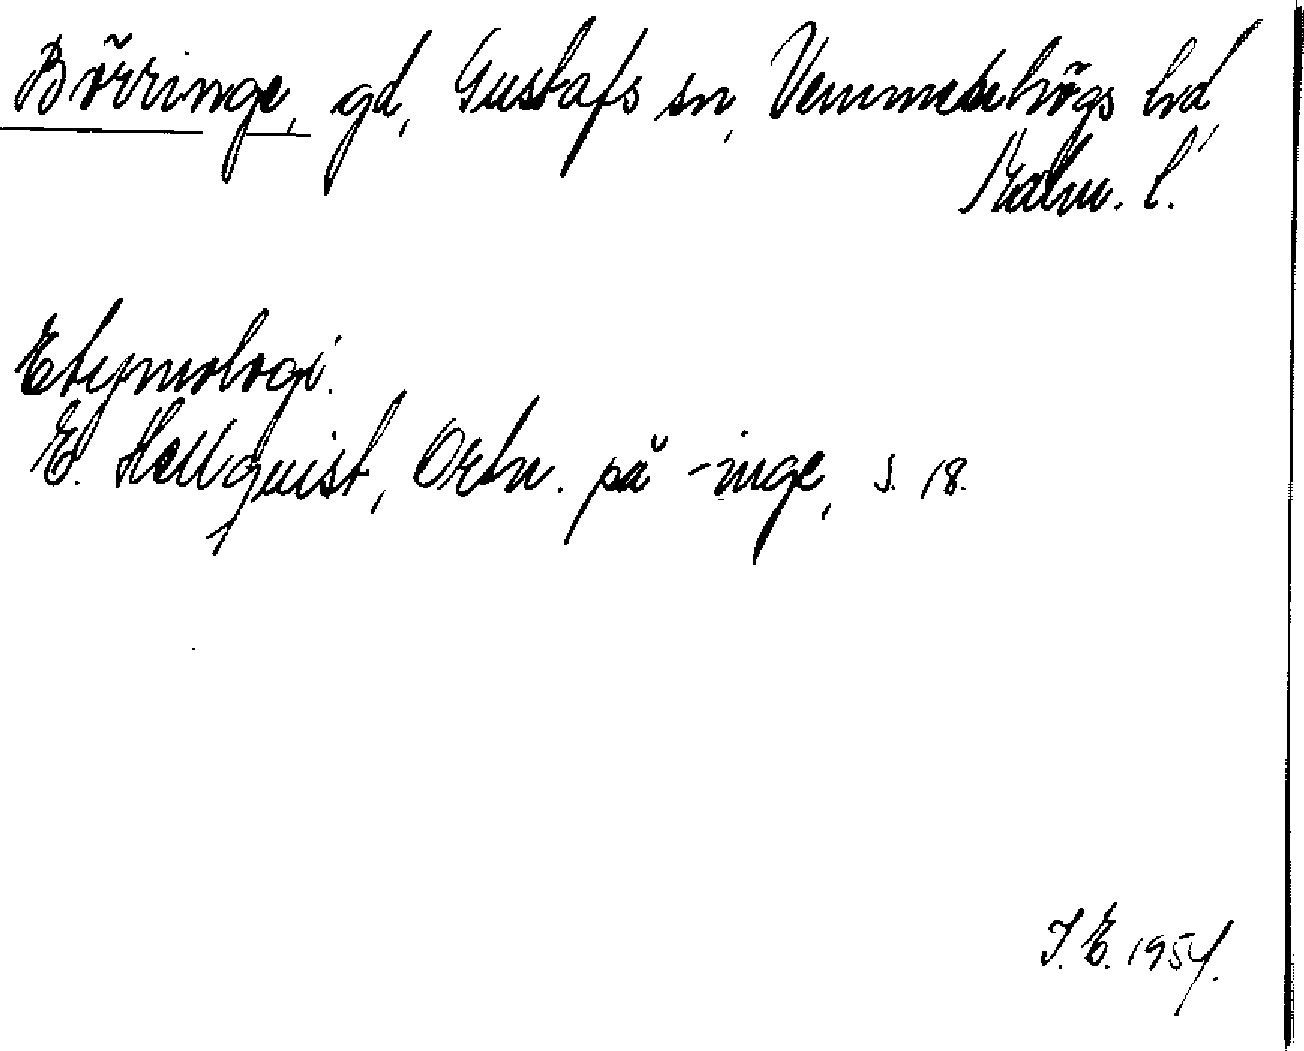 Börringe, gd, Gustafs sn, Vemmenhögs hd,
Malm. l.
Etymologi.
E. Hellquist, Ortn. på -inge, s. 18.
I. E. 1954.